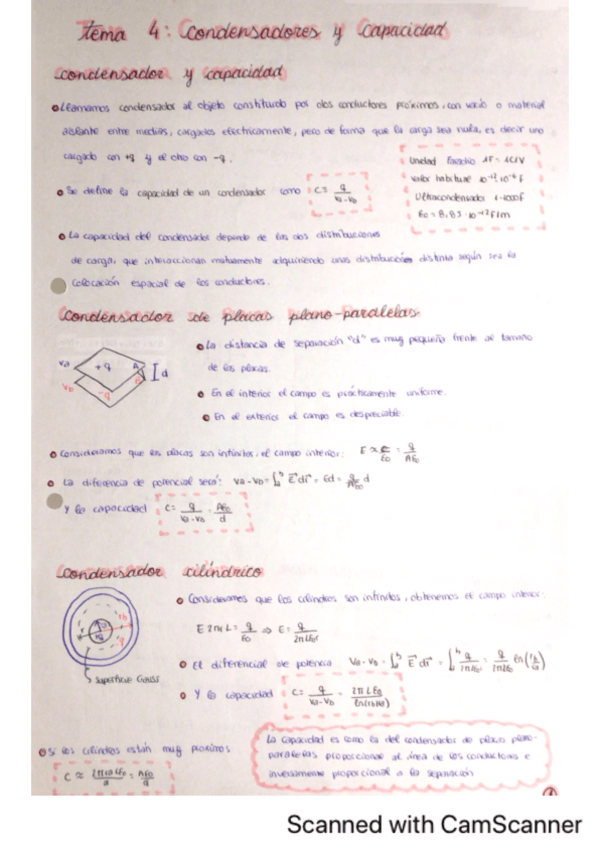 Tema 4: Condensadores y Capacidad
condensador y capacidad
Llamamos condensador al objeto constituido por dos conductores próximos, con vacío o material
aislante entre medias, cargados eléctricamente, pero de forma que la carga sea nula, es decir uno
cargado con +q y el otro con -q.
Unidad Faradio 1F = 1C/V
Valor habitual 10⁻¹² 10⁻⁶ F
Ultracondensador 1-1000F
ε0 = 8,85·10⁻¹² F/m
Se define la capacidad de un condensador como C = q/(Va-Vb)
La capacidad del condensador depende de las dos distribuciones
de carga, que interaccionan mutuamente adquiriendo unas distribución distinta según sea la
colocación espacial de los conductores.
Condensador de placas plano-paralelas
Va +q A d
Vb -q
La distancia de separación "d" es muy pequeña frente al tamaño
de las placas.
En el interior el campo es prácticamente uniforme.
En el exterior el campo es despreciable.
Consideramos que las placas son infinitas, el campo interior: E ≈ σ/ε0 = q/Aε0
La diferencia de potencial será: Va-Vb = ∫ₐᵇ E dr = Ed = q/Aε0 d
y la capacidad C = q/(Va-Vb) = Aε0/d
Condensador cilíndrico
Consideramos que los cilindros son infinitos, obtenemos el campo interior:
E 2πrL = q/ε0 ⇒ E = q/2πLε0r
Superficie Gauss
El diferencial de potencia Va-Vb = ∫ₐᵇ E dr =
Y la capacidad C = q/(Va-Vb) = 2πLε0/
Si los cilindros están muy próximos
C ≈ = Aε0/d
La capacidad es como la del condensador de placas plano-
paralelas proporcional al área de los conductores e
inversamente proporcional a la separación
1
Scanned with CamScanner